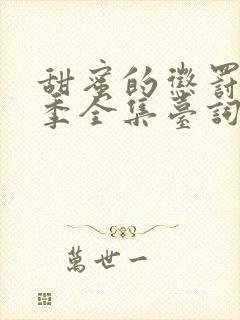 甜蜜的懲罰
季全集臺詞
萬世一